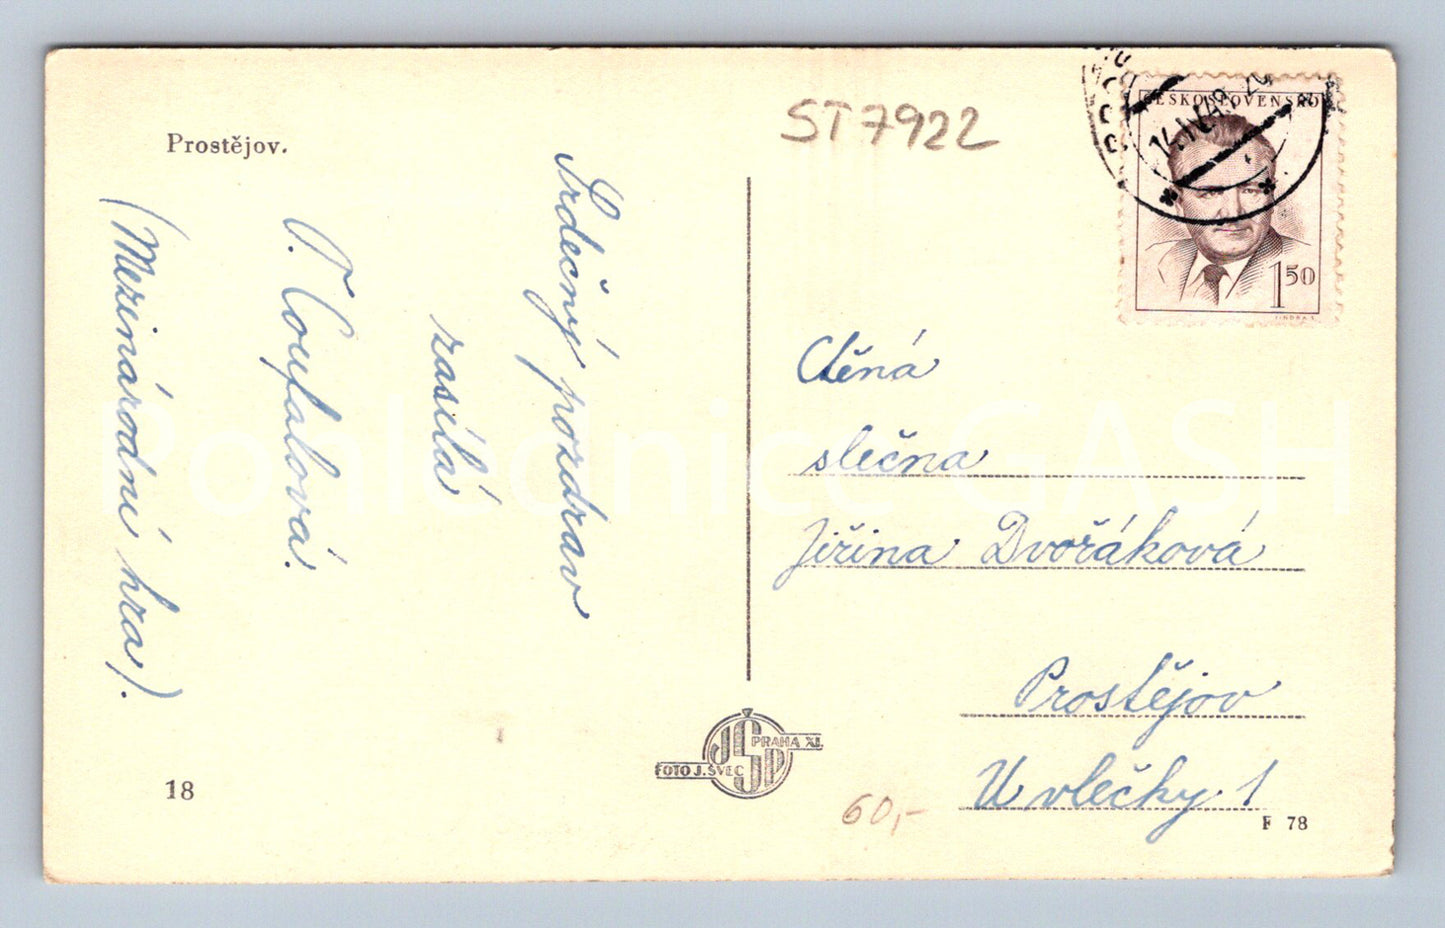 Prostějov.
ST7922
ČESKOSLOVENSKO
14.IV.49
1 50
JINDRA S.
Srdečný pozdrav
zasílá
Coufalová.
(Mezinárodní hra).
Ctěná
slečna
Jiřina Dvořáková
Prostějov
U vlečky. 1
PRAHA XI.
JŠP
FOTO J. ŠVEC
18
60,-
F 78
Pohlednice GASH